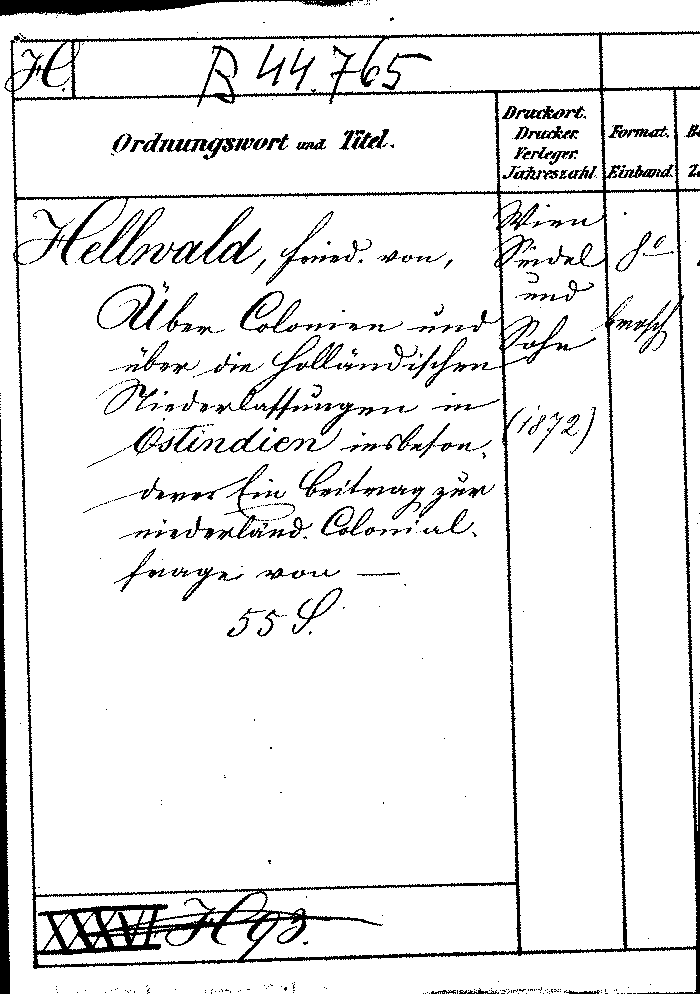 H.
B 44.765
Ordnungswort und Titel.
Druckort.
Drucker.
Verleger.
Jahreszahl.
Format.
Einband.
Hellwald, Fried. von,
Über Colonien und
über die Holländischen
Niederlassungen in
Ostindien insbeson-
dere. Ein Beitrag zur
niederländ. Colonial-
frage von —
55 S.
Wien
Seidel
und
Sohn
(1872)
8°
brosch
XXXVI H 93.